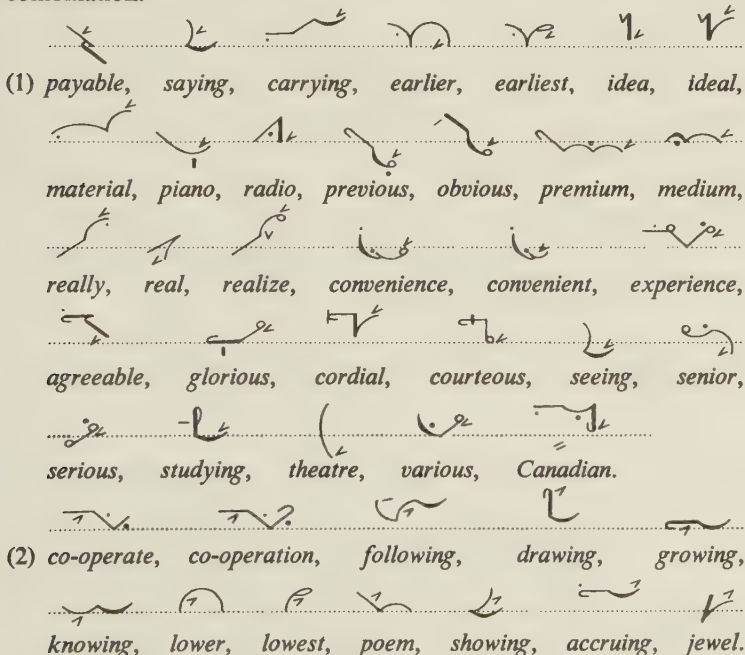 (1) payable, saying, carrying, earlier, earliest, idea, ideal,
material, piano, radio, previous, obvious, premium, medium,
really, real, realize, convenience, convenient, experience,
agreeable, glorious, cordial, courteous, seeing, senior,
serious, studying, theatre, various, Canadian.
(2) co-operate, co-operation, following, drawing, growing,
knowing, lower, lowest, poem, showing, accruing, jewel.